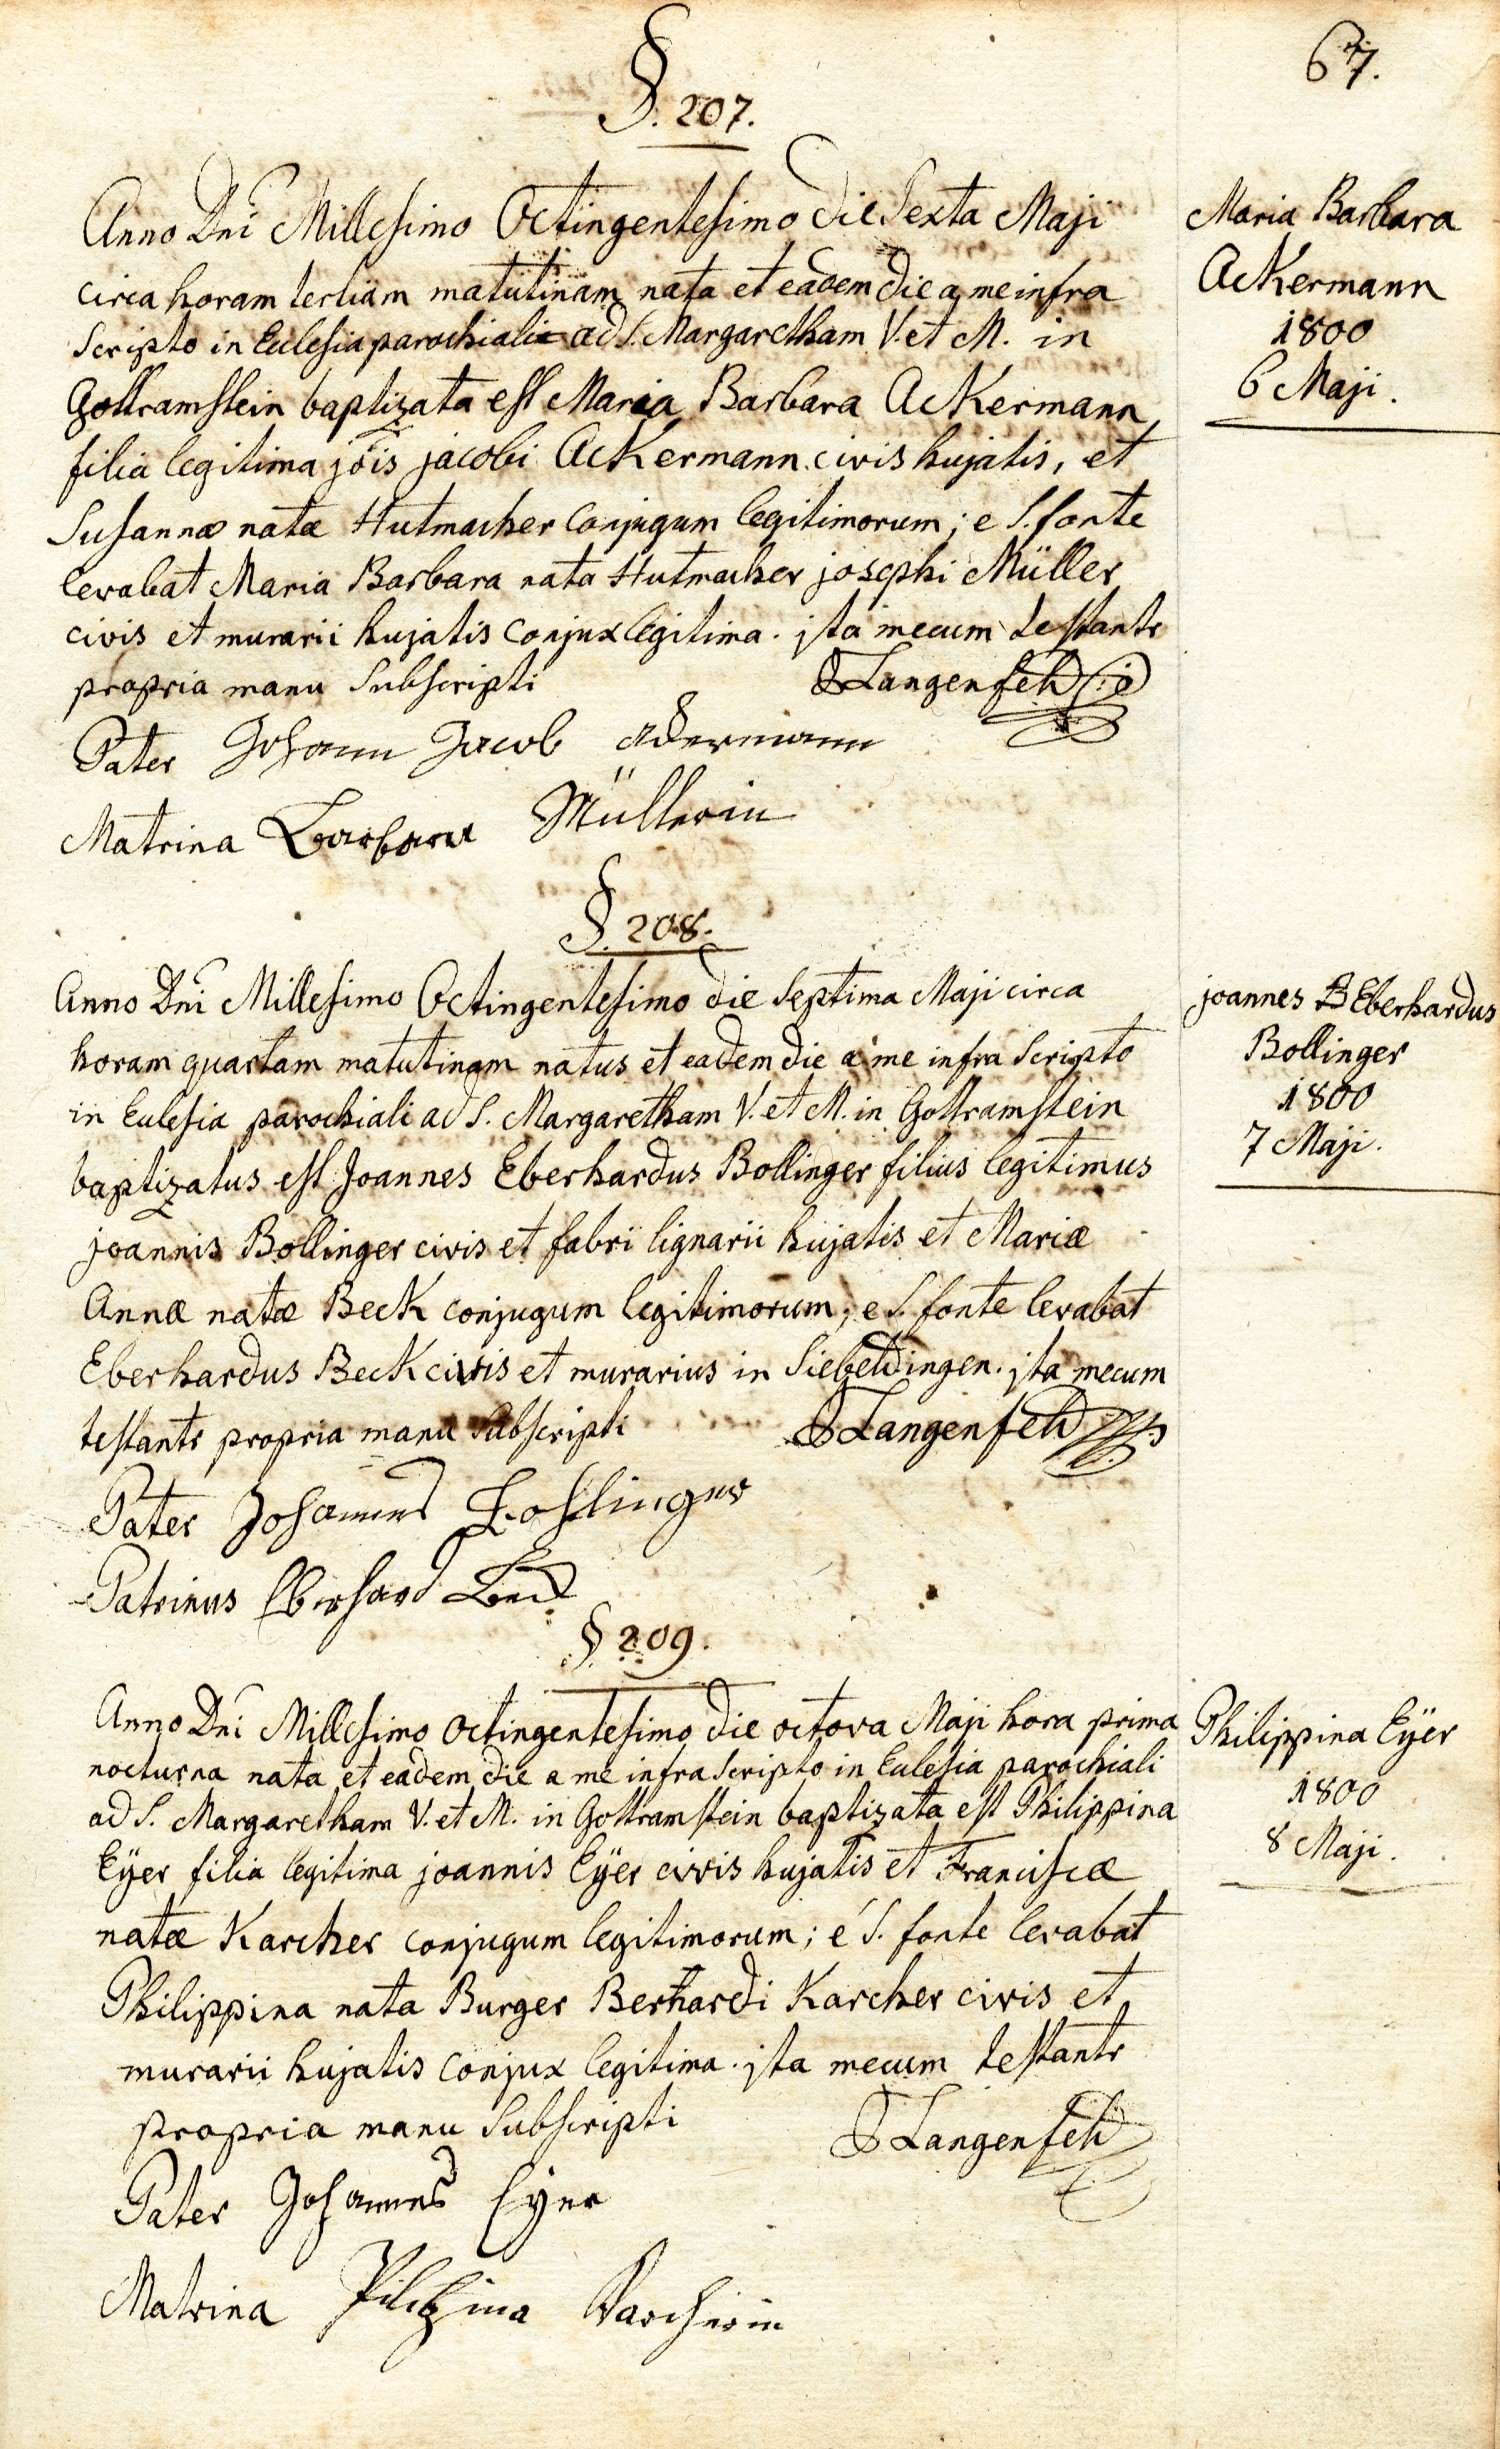 67.
§. 207.
Anno Dni Millesimo Octingentesimo die Sexta Maji
circa horam tertiam matutinam nata et eadem die a me infra
scripto in Eclesia parochiali ad S. Margaretham V. et M. in
Gottramstein baptizata est Maria Barbara Ackermann
filia legitima jois jacobi Ackermann civis hujatis, et
Susannæ natæ Hutmacher conjugum legitimorum; e S. fonte
levabat Maria Barbara nata Hutmacher josephi Müller
civis et murarii hujatis conjux legitima. jta mecum testantr
propria manu subscripti
Langenfeld
Pater Johann Jacob Ackermann
Matrina Barbara Müllerin
Maria Barbara
Ackermann
1800
6 Maji.
§. 208.
Anno Dni Millesimo Octingentesimo die septima Maji circa
horam quartam matutinam natus et eadem die a me infra scripto
in Eclesia parochiali ad S. Margaretham V. et M. in Gottramstein
baptizatus est Joannes Eberhardus Bollinger filius legitimus
joannis Bollinger civis et fabri lignarii hujatis et Mariæ
Annæ natæ Beck conjugum legitimorum; e S. fonte levabat
Eberhardus Beck civis et murarius in Siebeldingen. jta mecum
testantr propria manu subscripti
Langenfeld
Pater Johannes Bollinger
Patrinus Eberhard Beck
joannes Eberhardus
Bollinger
1800
7 Maji.
§ 209.
Anno Dni Millesimo octingentesimo die octava Maji hora prima
nocturna nata et eadem die a me infra scripto in Eclesia parochiali
ad S. Margaretham V. et M. in Gottramstein baptizata est Philippina
Eÿer filia legitima joannis Eÿer civis hujatis et Franciscæ
natæ Karcher conjugum legitimorum; é S. fonte levabat
Philippina nata Burger Berhardi Karcher civis et
murarii hujatis conjux legitima. jta mecum testantr
propria manu subscripti
Langenfeld
Pater Johannes Eyer
Matrina Karcherin
Philippina Eÿer
1800
8 Maji.